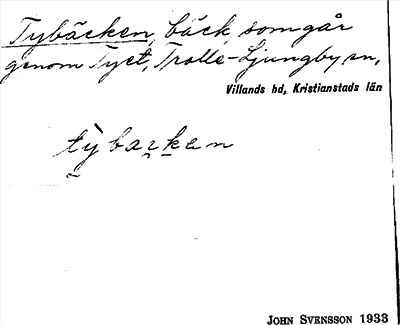 Tybäcken, bäck, som går
genom Tyet, Trolle-Ljungby sn,
Villands hd, Kristianstads län
JOHN SVENSSON 1933